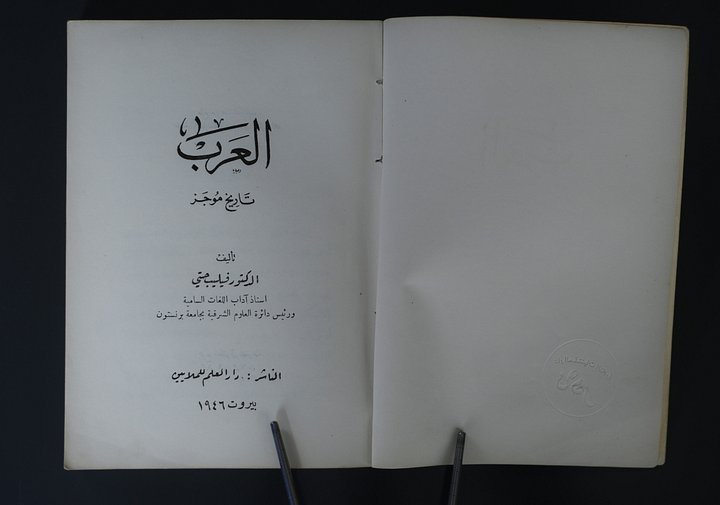 العرب
تاريخ موجز
تأليف
الدكتور فيليب حتي
استاذ آداب اللغات السامية
ورئيس دائرة العلوم الشرقية بجامعة برنستون
الناشر : دار العلم للملايين
بيروت ١٩٤٦